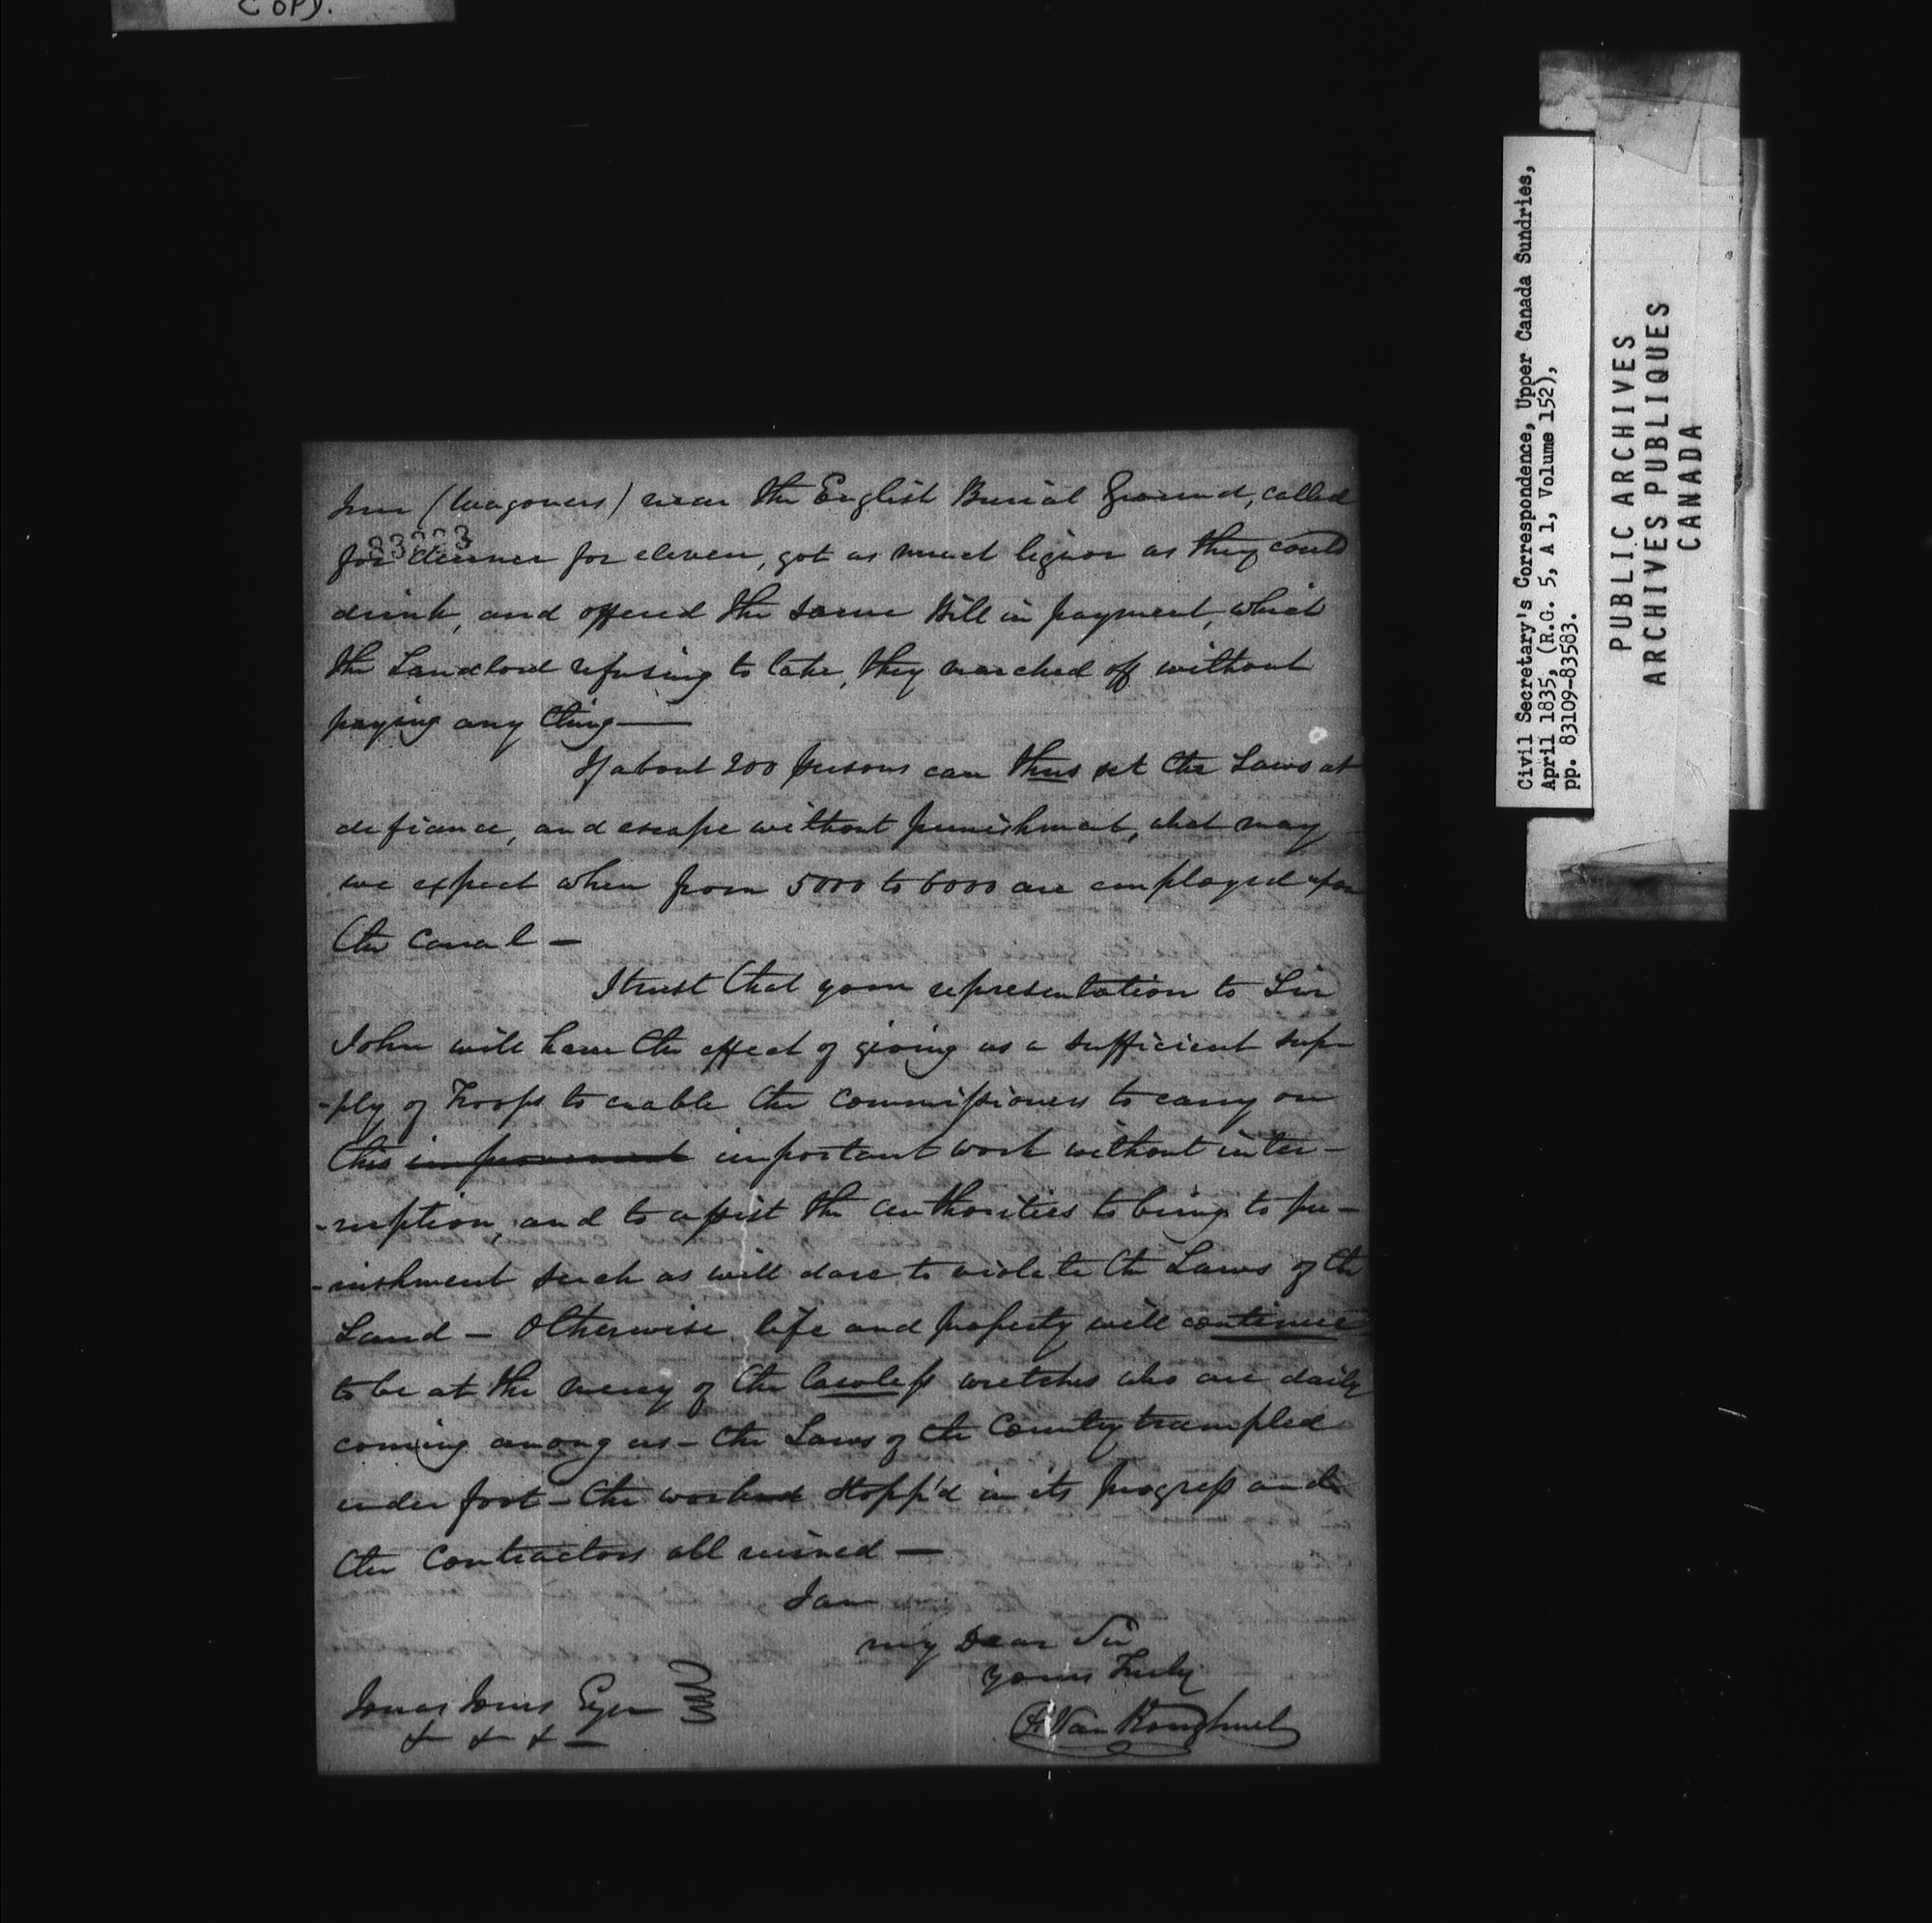 COPY.
Inn (Wagoners) near the English Burial Ground, called
83223
for dinner for eleven, got as much liquor as they could
drink, and offered the same Bill in payment, which
the Landlord refusing to take, they marched off without
paying any thing—
If about 200 persons can thus set the Laws at
defiance, and escape without punishment, what may
we expect when from 5000 to 6000 are employed upon
the canal —
I trust that your representation to Sir
John will have the effect of giving us a sufficient sup-
-ply of Troops to enable the Commissioners to carry on
this improvement important work without inter-
-ruption, and to assist the authorities to bring to pu-
-nishment such as will dare to violate the Laws of the
Land — Otherwise life and property will continue
to be at the mercy of the lawless wretches who are daily
coming among us — the Laws of the Country trampled
under foot — the work stopp'd in its progress and
the Contractors all ruined —
I am
my Dear Sir
yours Truly
Jonas Jones Esqr
& & & —
Van Koughnet
Civil Secretary's Correspondence, Upper Canada Sundries,
April 1835, (R.G. 5, A 1, Volume 152),
pp. 83109-83583.
PUBLIC ARCHIVES
ARCHIVES PUBLIQUES
CANADA